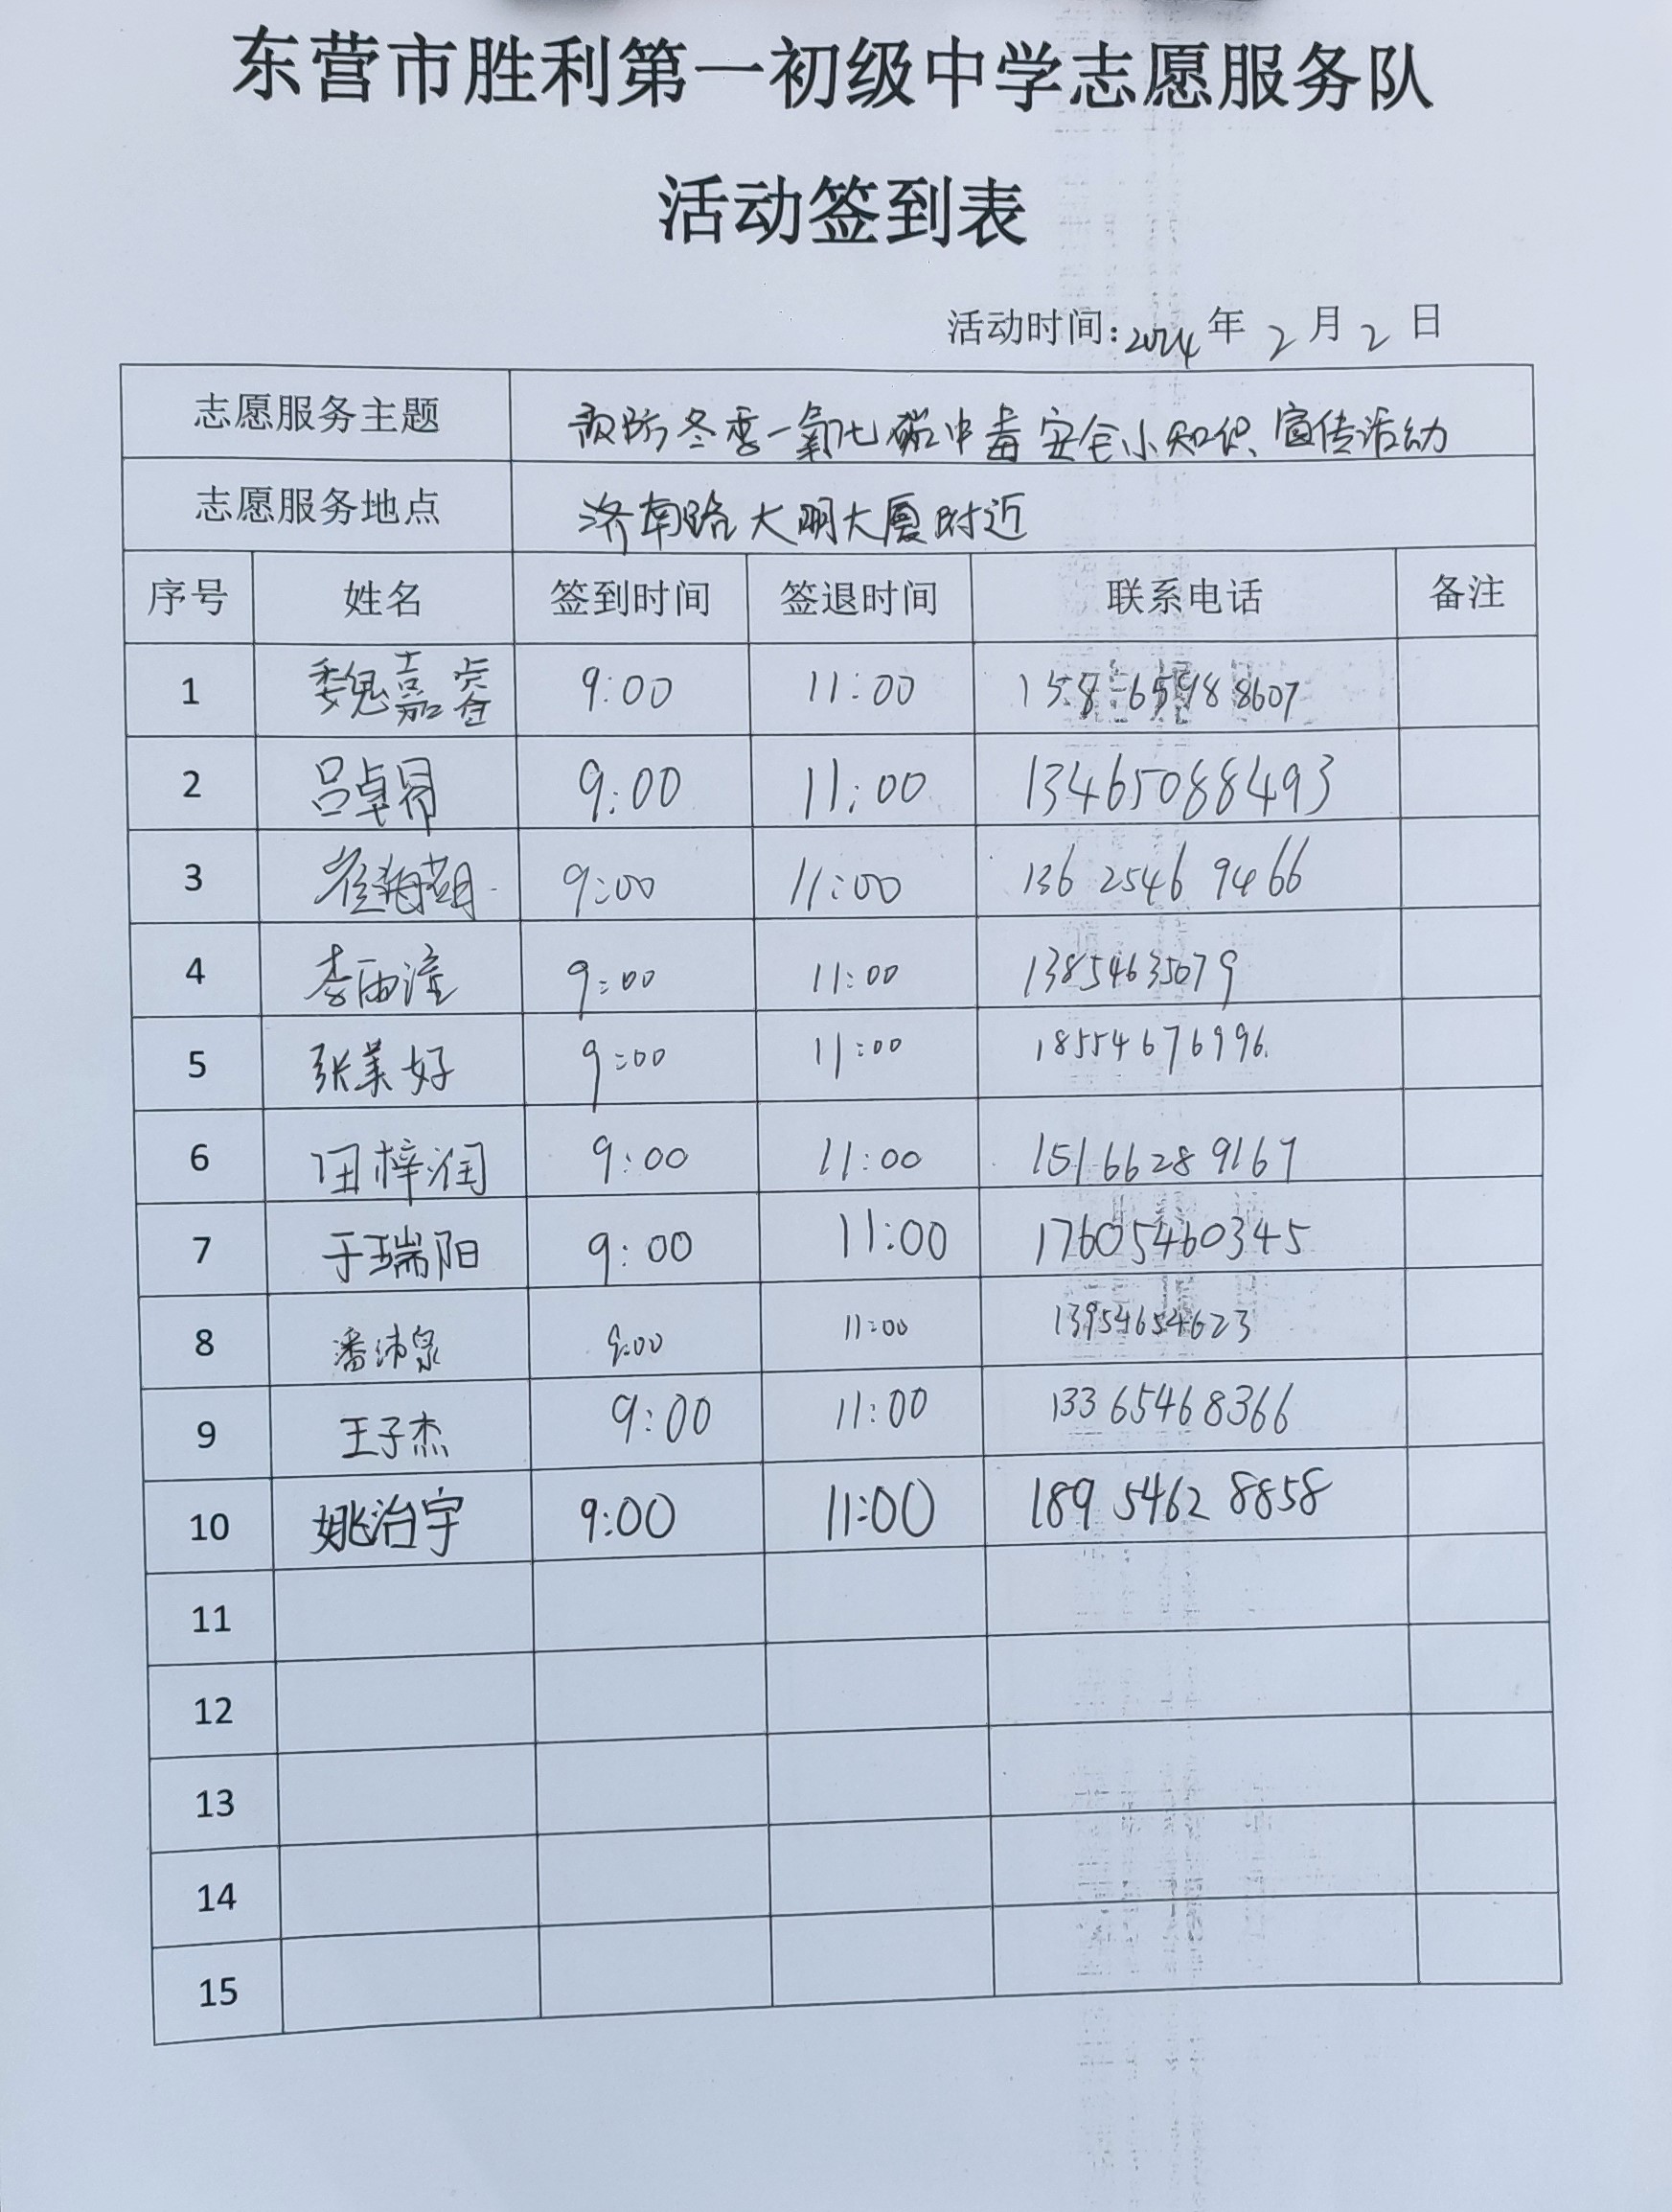 东营市胜利第一初级中学志愿服务队
活动签到表
活动时间：2024年2月2日
志愿服务主题 预防冬季一氧化碳中毒安全小知识宣传活动
志愿服务地点 济南路大明大厦附近
序号 姓名 签到时间 签退时间 联系电话 备注
1 魏嘉睿 9:00 11:00 158 6598 8607
2 吕卓 9:00 11:00 13465088493
3 崔海 9:00 11:00 136 2546 9466
4 李雨潼 9:00 11:00 13854635079
5 张美好 9:00 11:00 18554676996
6 田梓润 9:00 11:00 15166289167
7 于瑞阳 9:00 11:00 17605460345
8 潘沛泉 9:00 11:00 13954654623
9 王子杰 9:00 11:00 13365468366
10 姚治宇 9:00 11:00 189 5462 8858
11
12
13
14
15